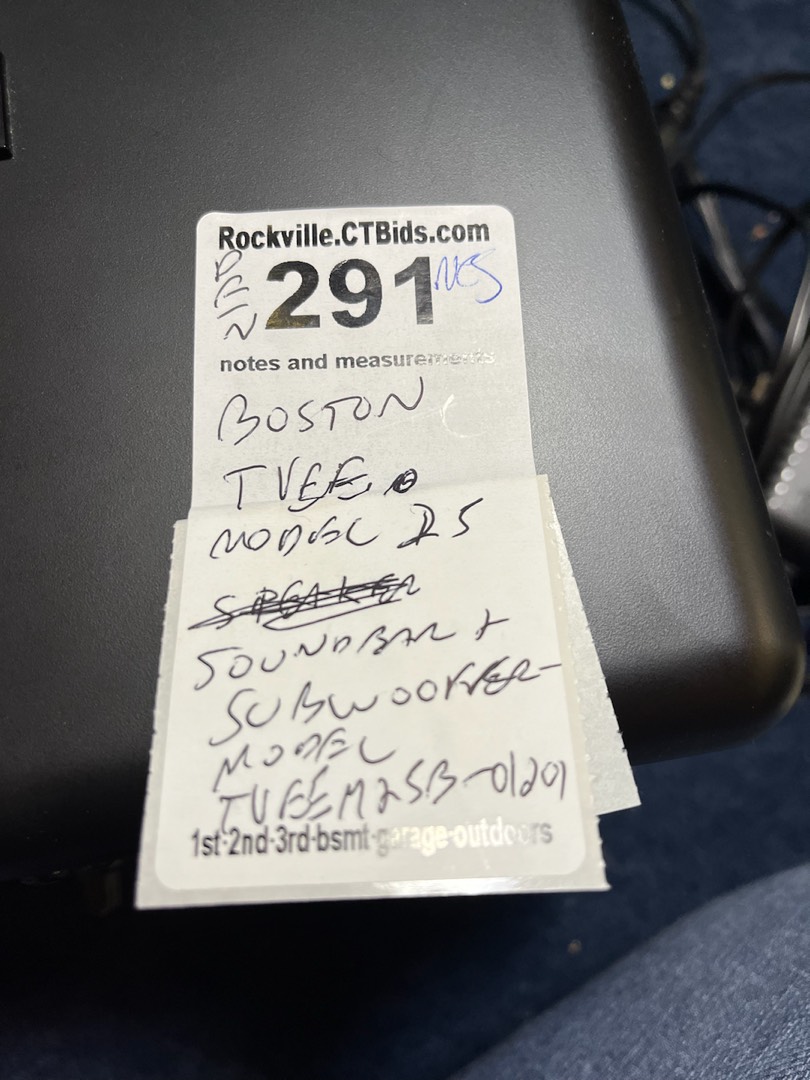 Rockville.CTBids.com
291
notes and measurements
BOSTON
TVEE
MODEL 25
SPEAKER
SOUNDBAR +
SUBWOOFER
MODEL
TVEEM25B-01201
1st-2nd-3rd-bsmt-garage-outdoors